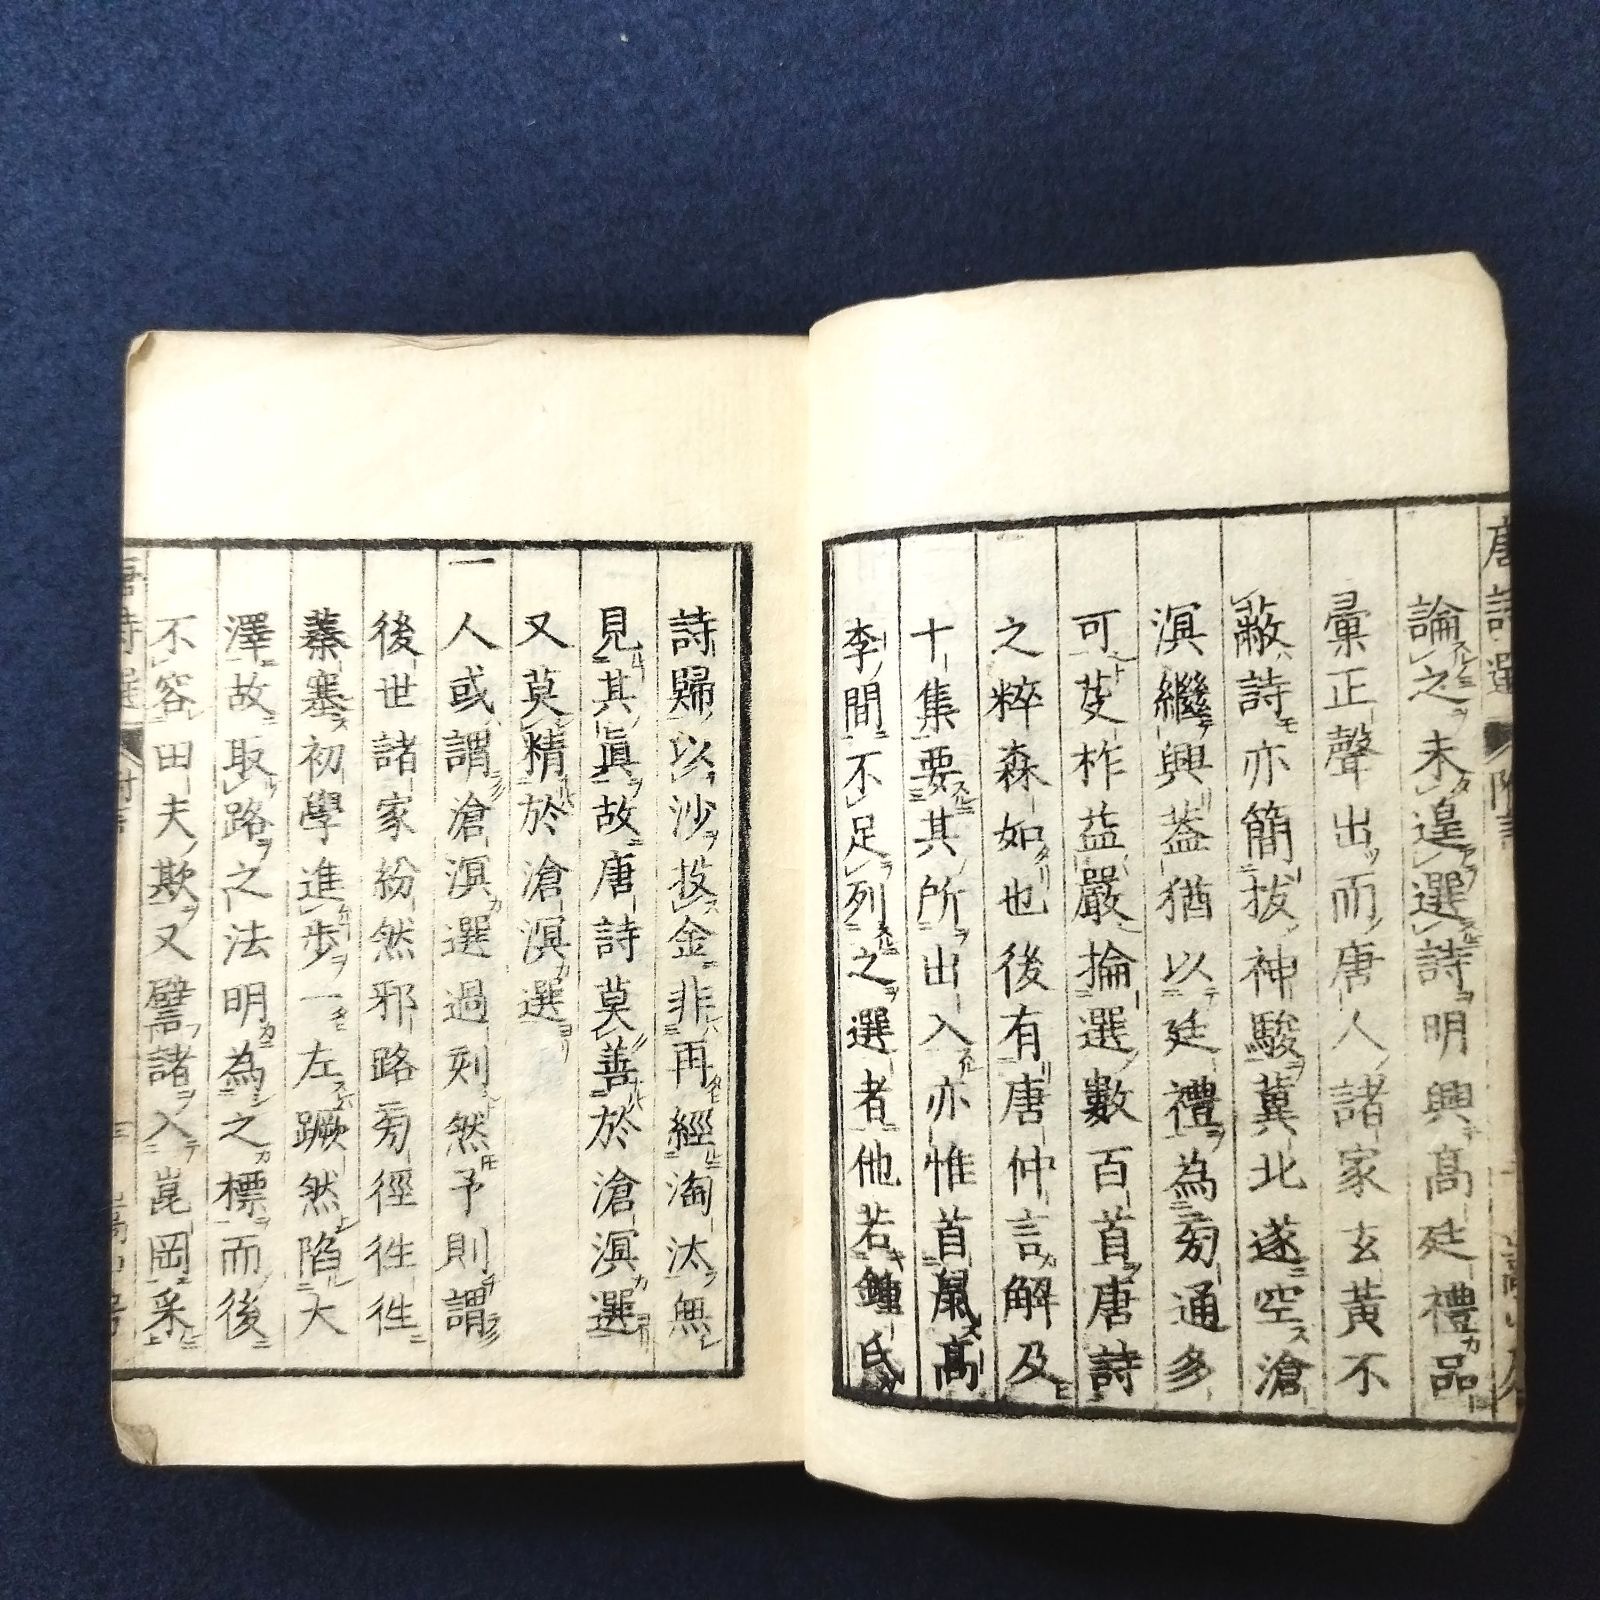 論之未遑選詩明興高廷禮品
彙正聲出而唐人諸家玄黃不
蔽詩亦簡拔神駿冀北遂空滄
溟繼興蓋猶以廷禮為旁通多
可芟柞益嚴掄選數百首唐詩
之粹森如也後有唐仲言解及
十集要其所出入亦惟首鼠高
李間不足列之選者他若鍾氏
詩歸以沙投金非再經淘汰無
見其眞故唐詩莫善於滄溟選
又莫精於滄溟選
一
人或謂滄溟選過刻然予則謂
後世諸家紛然邪路旁徑徃徃
蓁塞初學進步一左蹶然陷大
澤故取路之法明為之標而後
不容田夫欺又譬諸入崑岡采
唐詩選
附言